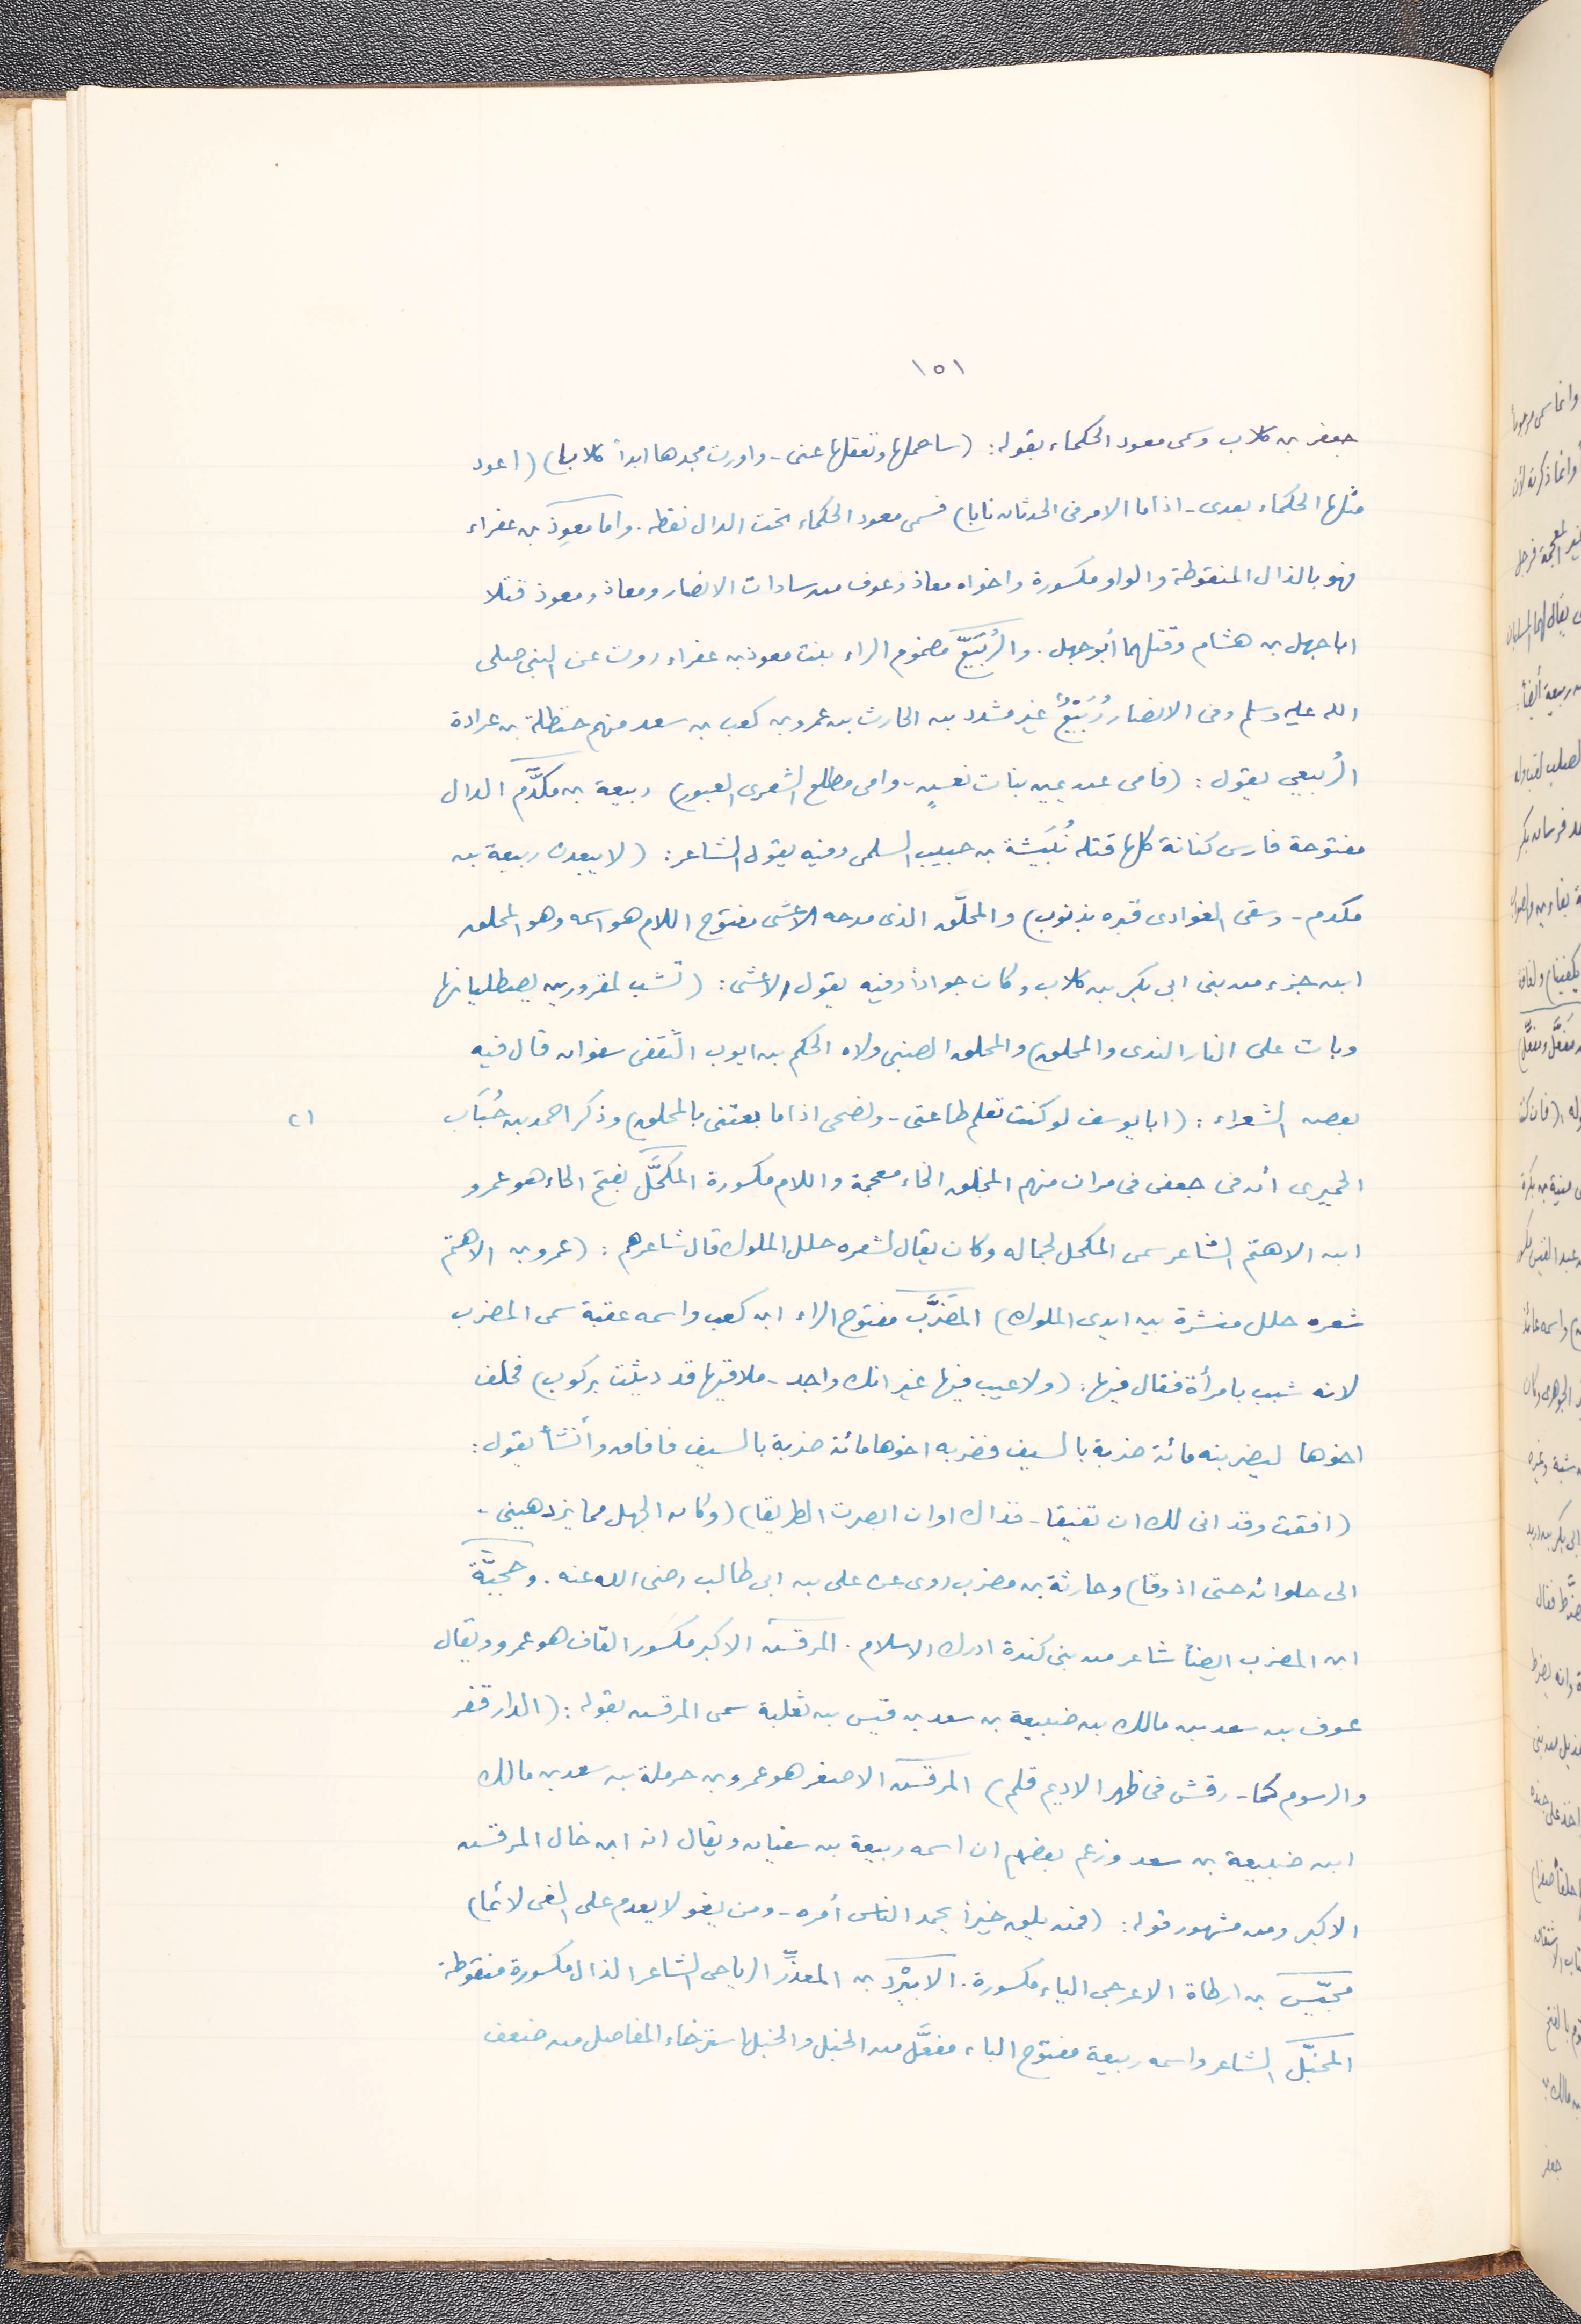 ١٥١
جعفر بن كلاب وسمى معود الحكماء بقوله: (سأحملها وتعقلها عنى - واورث مجدها ابداً كلابا) (اعود
مثلها الحكماء بعدى - اذا ما الامر فى الحدثان نابا) فسمى معود الحكماء تحت الدال نقطه. واما معوِذ بن عفراء
فهو بالذال المنقوطة والواو مكسورة واخواه معاذ وعوف من سادات الانصار ومعاذ ومعوذ قتلا
ابا جهل بن هشام وقتلهما أبو جهل. والرُبَيِّع مضموم الراء بنت معوذ بن عفراء روت عن النبى صلى
الله عليه وسلم وفى الانصار رُبَيْعُ غير مشدد بن الحارث بن عمرو بن كعب بن سعد منهم حنظلة بن عرادة
الرُبيعي يقول: (فامى عن يمين بنات نعشٍ - وامى مطلع الشعرى العبور) ربيعة بن مكدَّم الدال
مفتوحة فارس كنانة كلها قتله نُبَيشة بن حبيب السلمى وفيه يقول الشاعر: (لا يبعدن ربيعة بن
مكدم - وسقى الغوادى قبره بذنوب) والمحلَّق الذى مدحه الاعشى مفتوح اللام هو اسمه وهو المحلق
ابن جزء من بنى ابى بكر بن كلاب وكان جواداً وفيه يقول الاعشى: (تشب لمقرورين يصطليانها
وبات على النار الندى والمحلق) والمحلق الضبى ولاه الحكم بن ايوب الثقفى سفوان قال فيه
بعض الشعراء: (ابا يوسف لو كنت تعلم طاعتى - ونصحى اذا ما بعتنى بالمحلق) وذكر احمد بن حُبَاب
٢١
الحميرى أن فى جعفى فى مران منهم المخلق الخاء معجمة واللام مكسورة المكحَّل بفتح الحاء هو عمرو
ابن الاهتم الشاعر سمى المكحل لجماله وكان يقال لشعره حلل الملوك قال شاعرهم: (عمرو بن الاهتم
شعره حلل منشرة بين ايدى الملوك) المضرَّب مفتوح الراء ابن كعب واسمه عقبة سمى المضرب
لانه شبب بامرأة فقال فيها: (ولا عيب فيها غير انك واجد - ملاقيها قد ديثت بركوب) فحلف
اخوها ليضربنه مائة ضربة بالسيف فضربه اخوها مائة ضربة بالسيف فافاق وأنشأ يقول:
(افقت وقد انى لك ان تفيقا - فذاك اوان ابصرت الطريقا) (وكان الجهل مما يزدهينى -
الى حلوائه حتى اذوقا) وحارثة بن مضرب روى عن على بن ابى طالب رضى الله عنه. وحجيَّة
ابن المضرب ايضاً شاعر من بنى كندة ادرك الاسلام. المرقش الاكبر مكسور القاف هو عمرو ويقال
عوف بن سعد بن مالك بن ضبيعة بن سعد بن قيس بن ثعلبة سمى المرقش بقوله: (الدار قفر
والرسوم كما - رقش فى ظهر الاديم قلم) المرقش الاصغر هو عمرو بن حرملة بن سعد بن مالك
ابن ضبيعة بن سعد وزعم بعضهم ان اسمه ربيعة بن سفيان ويقال انه ابن خال المرقش
الاكبر ومن مشهور قوله: (فمن يلق خيراً يحمد الناس أمره - ومن يغو لا يعدم على الغى لائما)
محيّس بن ارطاة الاعرجى الياء مكسورة. الابيْرد بن المعذِّر الرياحى الشاعر الذال مكسورة منقوطة
المخبَّل الشاعر واسمه ربيعة مفتوح الباء مفعَّل من الخبل والخبل استرخاء المفاصل من ضعف